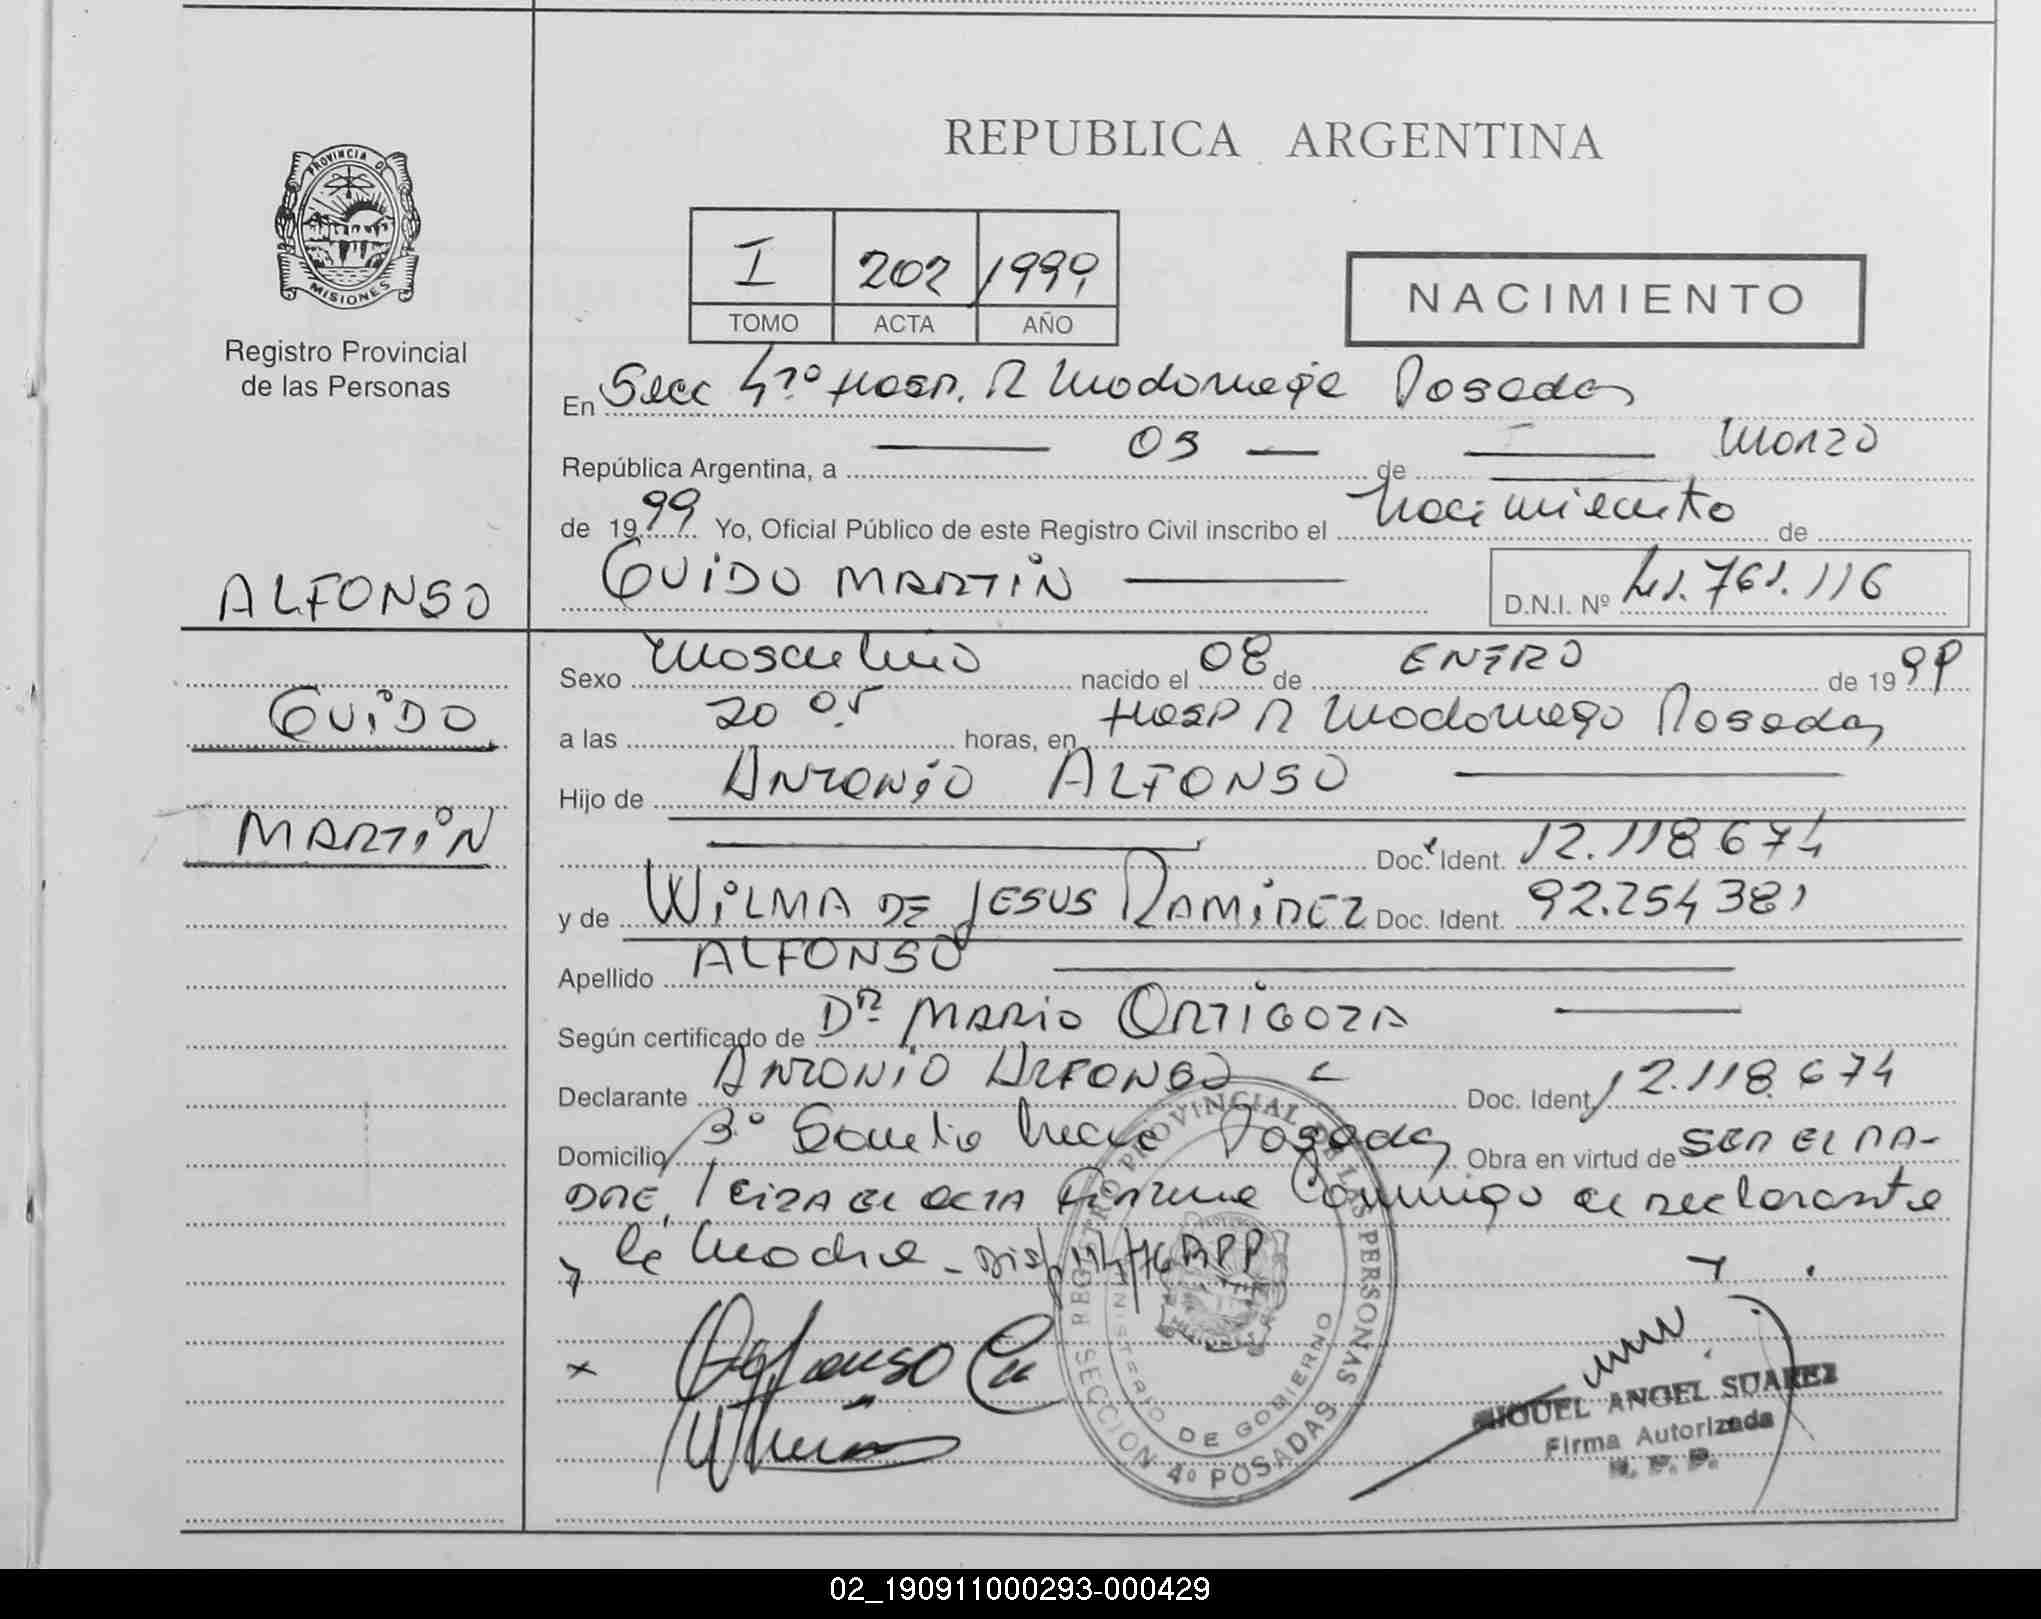 REPUBLICA ARGENTINA
PROVINCIA DE
MISIONES
Registro Provincial
de las Personas
I 202 1999
TOMO ACTA AÑO
NACIMIENTO
En Secc 4º Hosp. R Madariaga Posadas
República Argentina, a 03 de Marzo
de 1999 Yo, Oficial Público de este Registro Civil inscribo el Nacimiento de
GUIDO MARTIN D.N.I. Nº 41.761.116
ALFONSO
GUIDO
MARTIN
Sexo Masculino nacido el 08 de ENERO de 1999
a las 20 05 horas, en Hosp R Madariaga Posadas
Hijo de ANTONIO ALFONSO
Doc. Ident. 12.118.674
y de WILMA DE JESUS RAMIREZ Doc. Ident. 92.254381
Apellido ALFONSO
Según certificado de Dr MARIO ORTIGOZA
Declarante ANTONIO ALFONSO Doc. Ident. 12.118.674
Domicilio Posadas Obra en virtud de SER EL PA-
DRE, Leida el acta firma conmigo el declarante
y la Madre - Disp
Alfonso
REGISTRO PROVINCIAL DE LAS PERSONAS
MINISTERIO DE GOBIERNO
SECCION 4º POSADAS
MIGUEL ANGEL SUAREZ
Firma Autorizada
R. P. P.
02_190911000293-000429